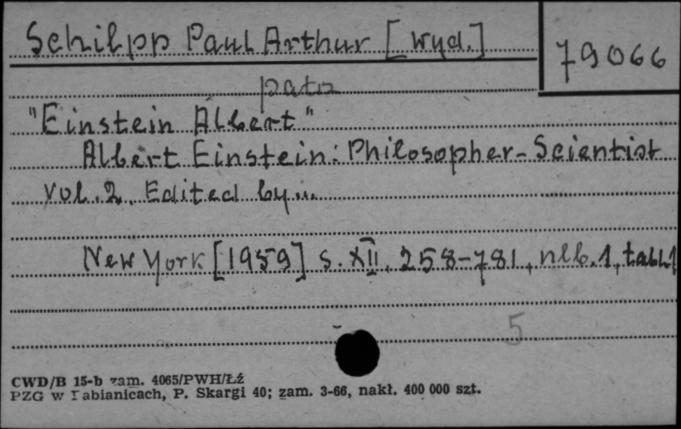 Schilpp Paul Arthur [wyd.]
79066
patrz
"Einstein Albert"
Albert Einstein: Philosopher-Scientist
Vol. 2. Edited by...
New York [1959] s. XII, 258-781, nlb. 1, tabl. 1
5
CWD/B 15-b zam. 4065/PWH/Łź
PZG w Pabianicach, P. Skargi 40; zam. 3-66, nakł. 400 000 szt.